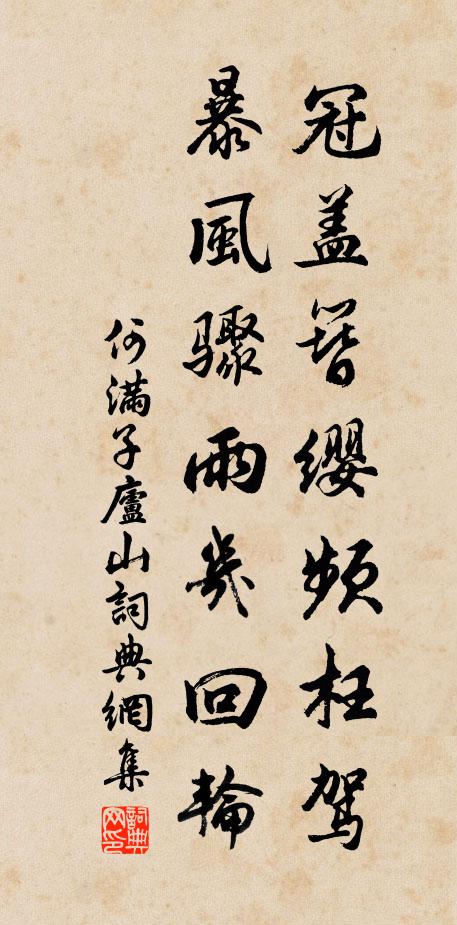 冠盖簪缨频枉駕
暴風驟雨幾回輪
何滿子廬山詞典網集
詞典網印